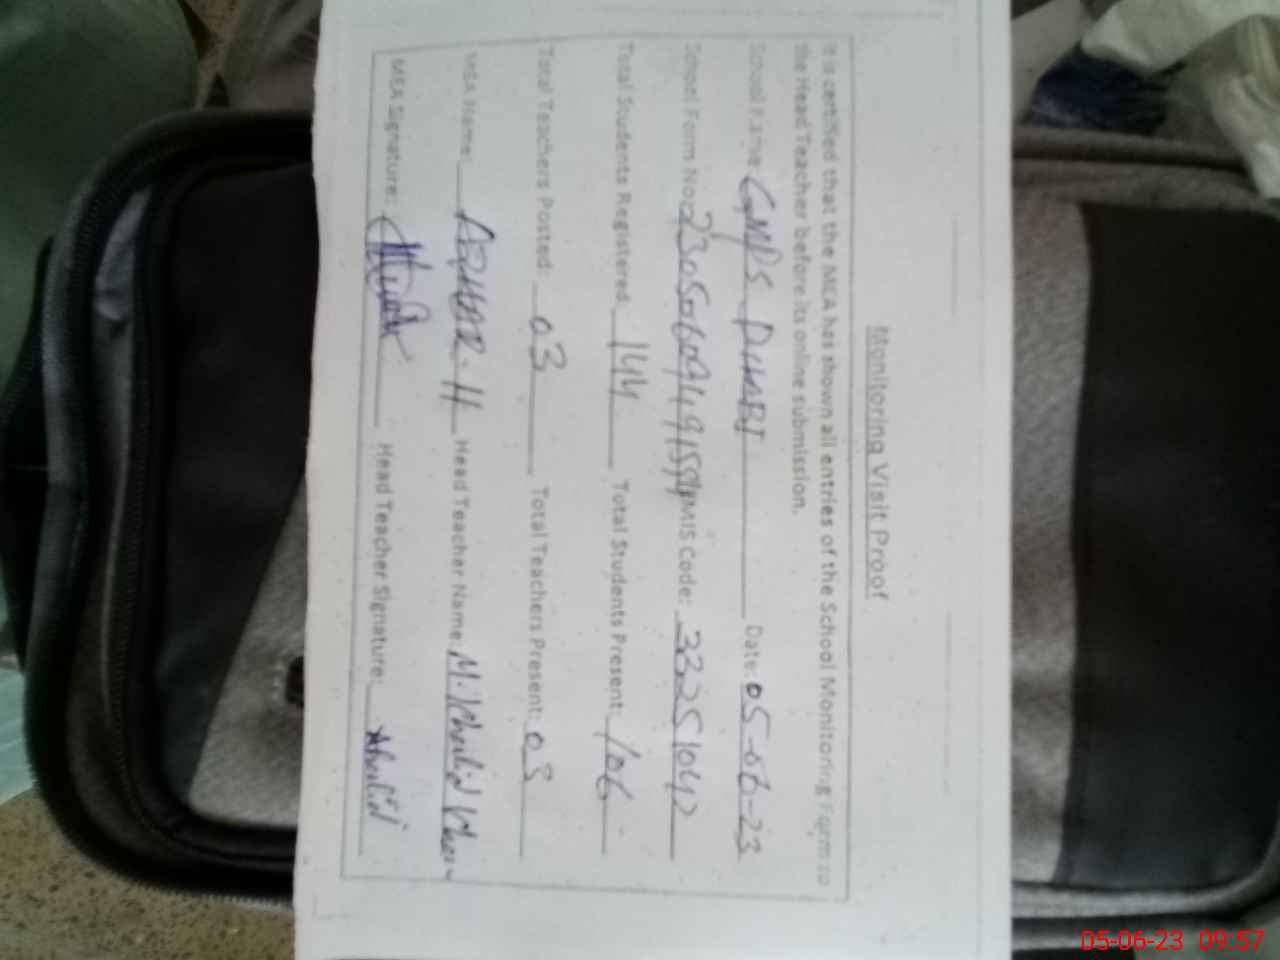 Monitoring Visit Proof
It is certified that the MEA has shown all entries of the School Monitoring Form to
the Head Teacher before its online submission.
School Name GMPS DHABI Date: 05-06-23
School Form No: EMIS Code: 33251042
Total Students Registered 144 Total Students Present: 106
Total Teachers Posted: 03 Total Teachers Present: 03
MEA Name: AZHAR. H Head Teacher Name: M. Khalid Khan
MEA Signature: Head Teacher Signature: Khalid
05-06-23 09:57